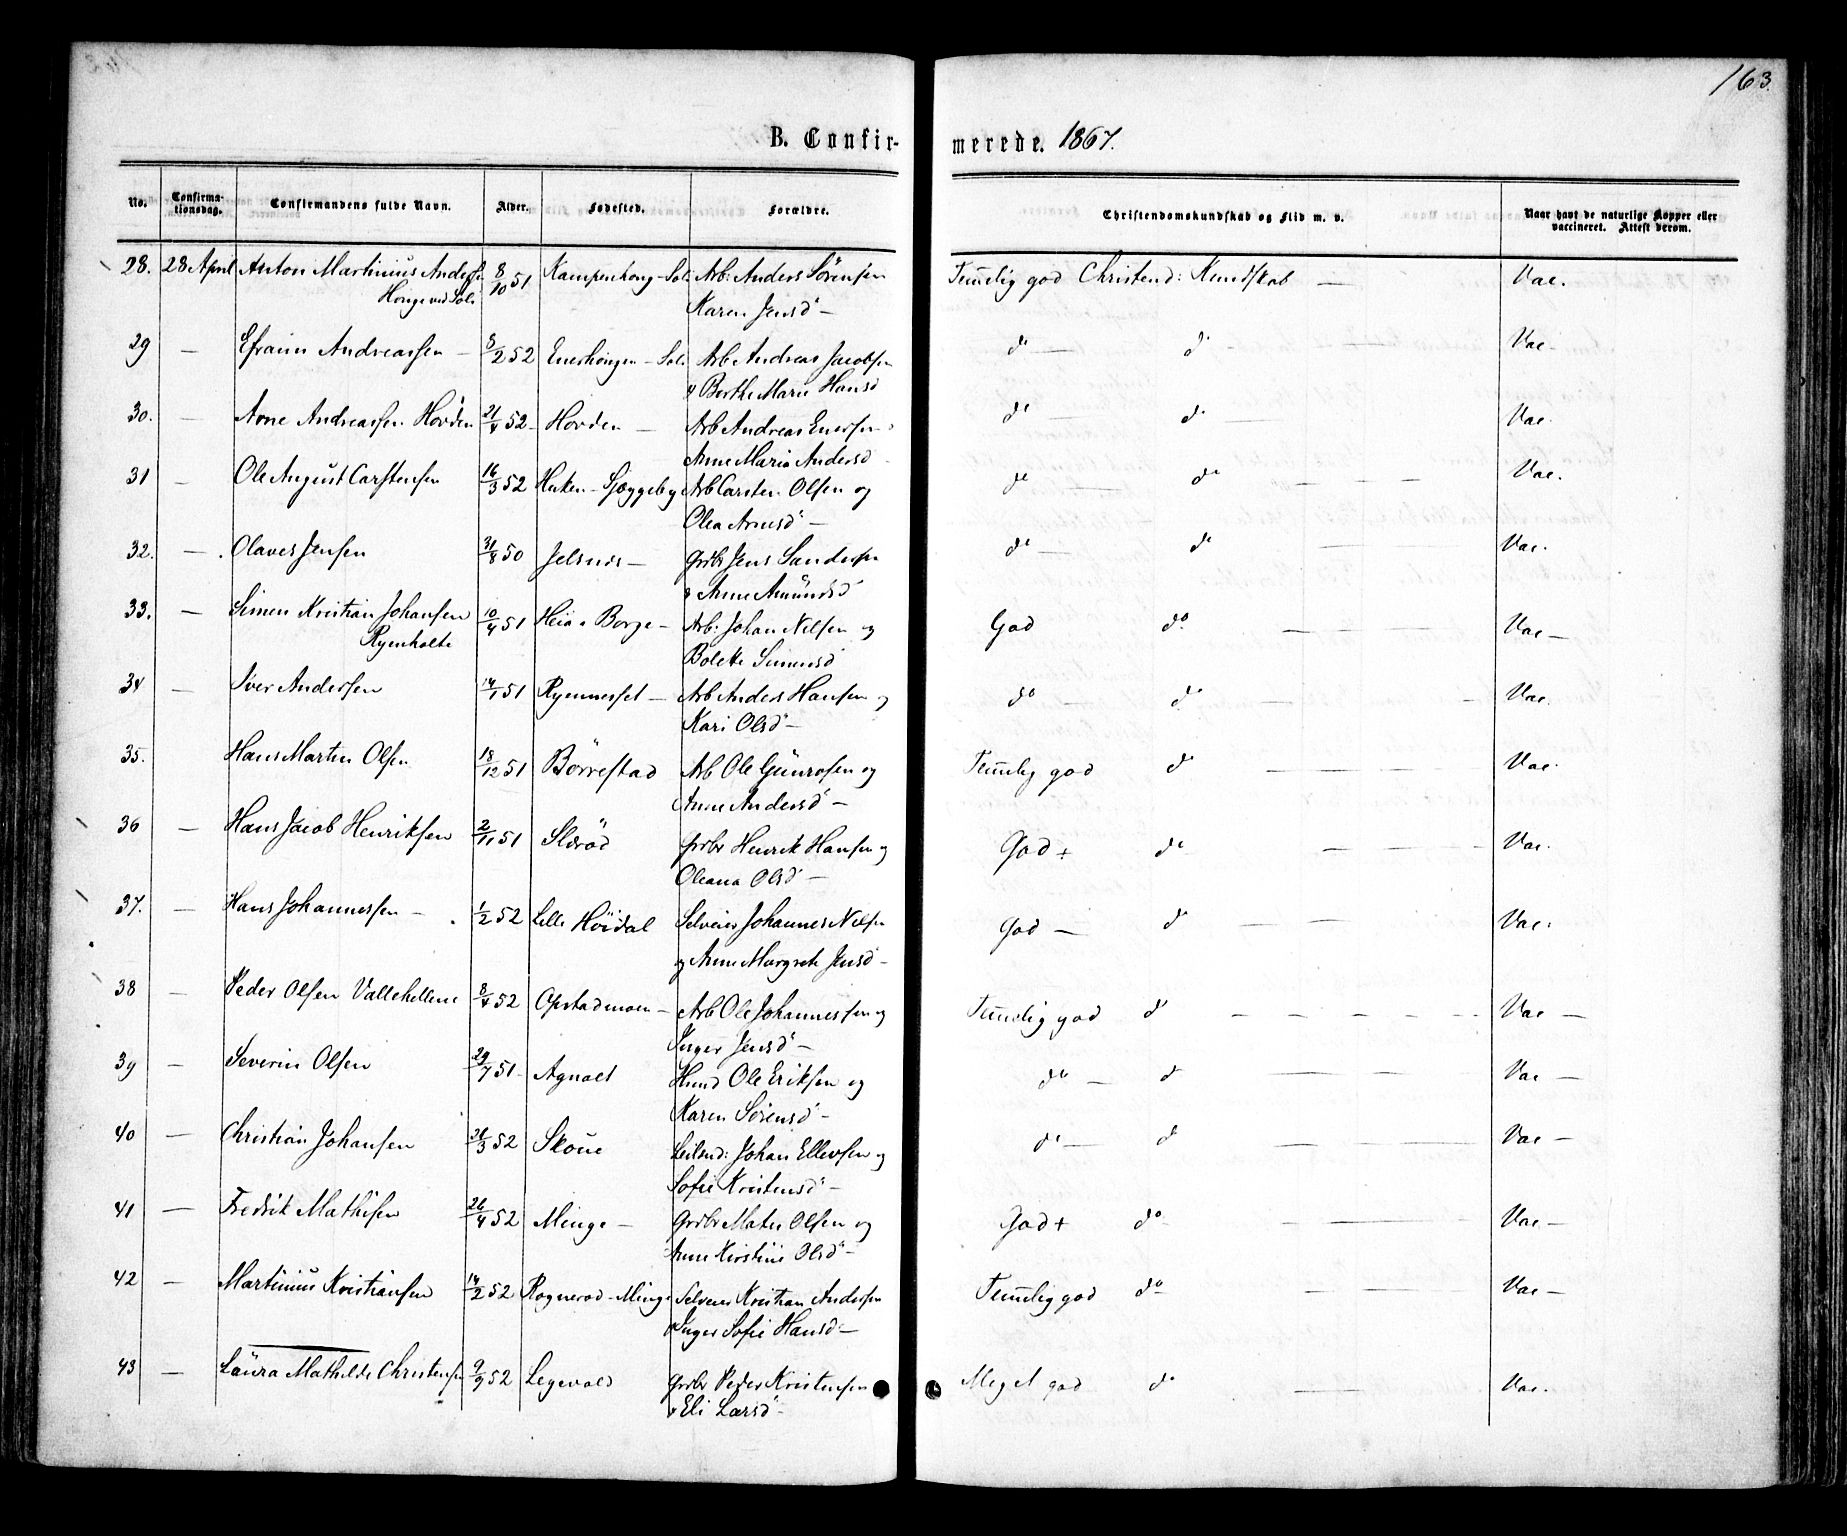 163.
B. Confirmerede. 1867.
No. Confirmationsdag. Confirmandens fulde Navn. Alder. Fødested. Forældre. Christendomskundskab og Flid m. v. Naar havt de naturlige Kopper eller vaccineret. Attest derom.
28. 28 April Anton Martinius Andersen 8/10 51 Kampenhaug - Soli Arb: Anders Sörensen Temelig god Christend: Kundskab — Vac.
Hauge ved Soli Karen Jensd —
29 — Efraim Andreassen — 8/2 52 Enerhaugen - Soli Arb Andreas Jacobsen do — do - Vac -
og Berthe Marie Hansd
30. — Arne Andreassen Hovden 21/4 52 - Hovden — Arb Andreas Enersen do — do — Vac.
Anne Maria Andersd
31 — Ole August Carstensen 16/3 52 Huken - Sjæggeby Arb Carsten Olsen og do do — — — Vac.
Olea Arnesd —
32. — Olaves Jensen 31/8 50 Jelsnes — Grdbr Jens Sandersen do — do — Vac.
& Anne Amundsd
33. — Simen Kristian Johansen 10/4 51 Heia i Borge — Arb: Johan Nilsen og God do — — Vac —
Ryenholte Bolette Simensd
34 — Iver Andersen 14/1 51 Arb Anders Hansen og do — do — — Vac.
Kari Olsd —
35. Hans Martin Olsen 18/12 51 Börrestad Arb Ole Gunrosen og Temelig god do — — Vac.
Anne Andersd —
36 — Hans Jacob Henriksen 2/11 51 Slæröd Grdbr Henrik Hansen og God + do — — — Vac.
Oleana Olsd —
37. — Hans Johannessen — 1/2 52 Lille Höidal Selveier Johannes Nilsen God — do — — Vac.
og Anne Margrete Jensd —
38 — Peder Olsen Vallehellene 8/4 52 Opstadmoen — Arb Ole Johannessen og Temelig god do — — — — — Vac —
Inger Jensd —
39 — Severin Olsen 29/7 51 - Agnalt Husmd Ole Eriksen og do — do — — Vac —
Karen Sörensd —
40 — Christian Johansen 26/3 52 Skoue Leilend: Johan Ellevsen og do — do — — Vac —
Sofie Kristensd —
41 — Fredrik Mathisen 26/4 52 Minge — Grdbr Mates Olsen og God + do - — — Vac —
Anne Kirstine Olsd —
42 — Martinius Kristiansen 14/2 52 Rogneröd - Minge Selveier Kristian Andersen Temelig god do — — Vac —
& Inger Sofie Hansd —
43 — Laura Mathilde Christensen 9/9 52 Legevold Grdbr Peder Kristensen Meget god do — Vac.
& Eli Larsd —